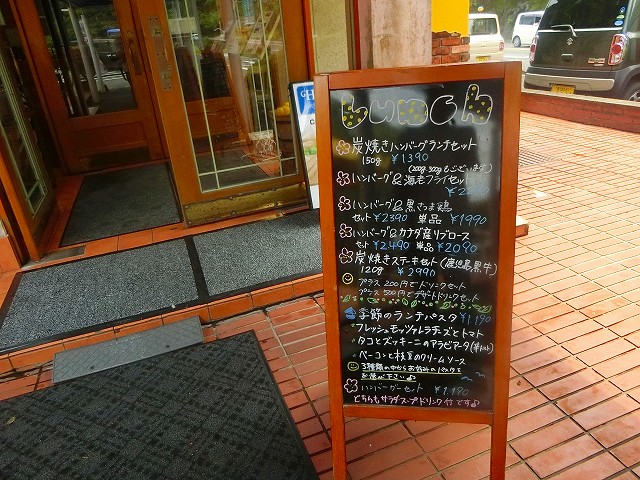 Lunch
炭焼きハンバーグランチセット
150g ¥1390
(200g 300gもございます)
ハンバーグ&海老フライセット
ハンバーグ&黒さつま鶏
セット¥2390 単品 ¥1990
ハンバーグ&カナダ産リブロース
セット¥2490 単品¥2090
炭焼きステーキセット(鹿児島黒牛)
120g ¥2990
プラス200円でドリンクセット
プラス500円でデザートドリンクセット
季節のランチパスタ ¥1190
・フレッシュモッツァレラチーズとトマト
・タコとズッキーニのアラビアータ
・ベーコンと枝豆のクリームソース
3種類の中からお好みのパスタを
お選び下さい♪
ハンバーグセット ¥1190
どちらもサラダ・スープ・ドリンク付です♪